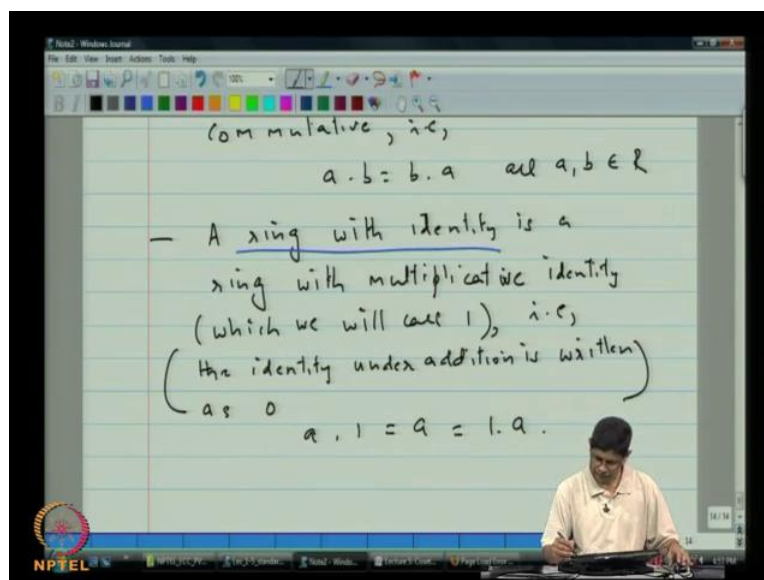 Note2 - Windows Journal
File Edit View Insert Actions Tools Help
100%
B I
Commutative, i.e,
a . b = b . a all a, b ∈ R
— A ring with identity is a
ring with multiplicative identity
(which we will call 1), i.e,
(the identity under addition is written
as 0)
a . 1 = a = 1 . a .
14/14
14
NPTEL
Note2 - Windo...
Lecture 5: Coset...
Page Load Error ...
4:52 PM